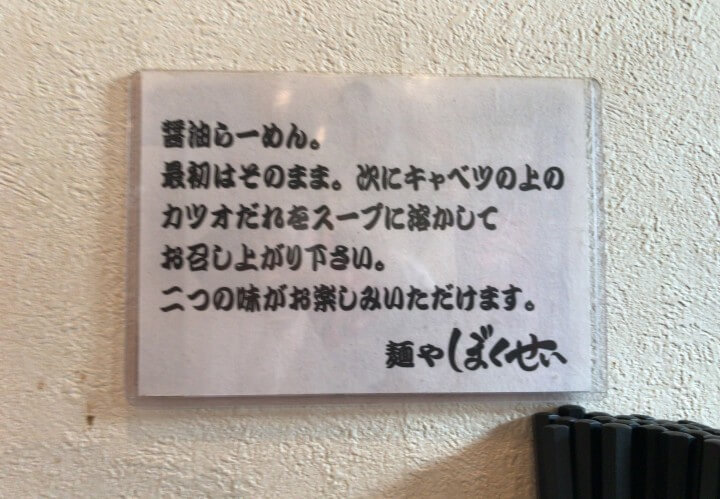 醤油らーめん。
最初はそのまま。次にキャベツの上の
カツオだれをスープに溶かして
お召し上がり下さい。
二つの味がお楽しみいただけます。
麺や ぼくせい